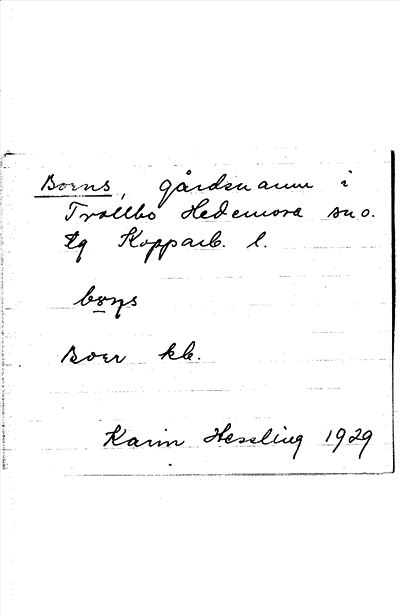 Boens, gårdsnamn i
Trollbo Hedemora sno.
Kopparb. l.
Boer kb.
Karin Hessling 1929